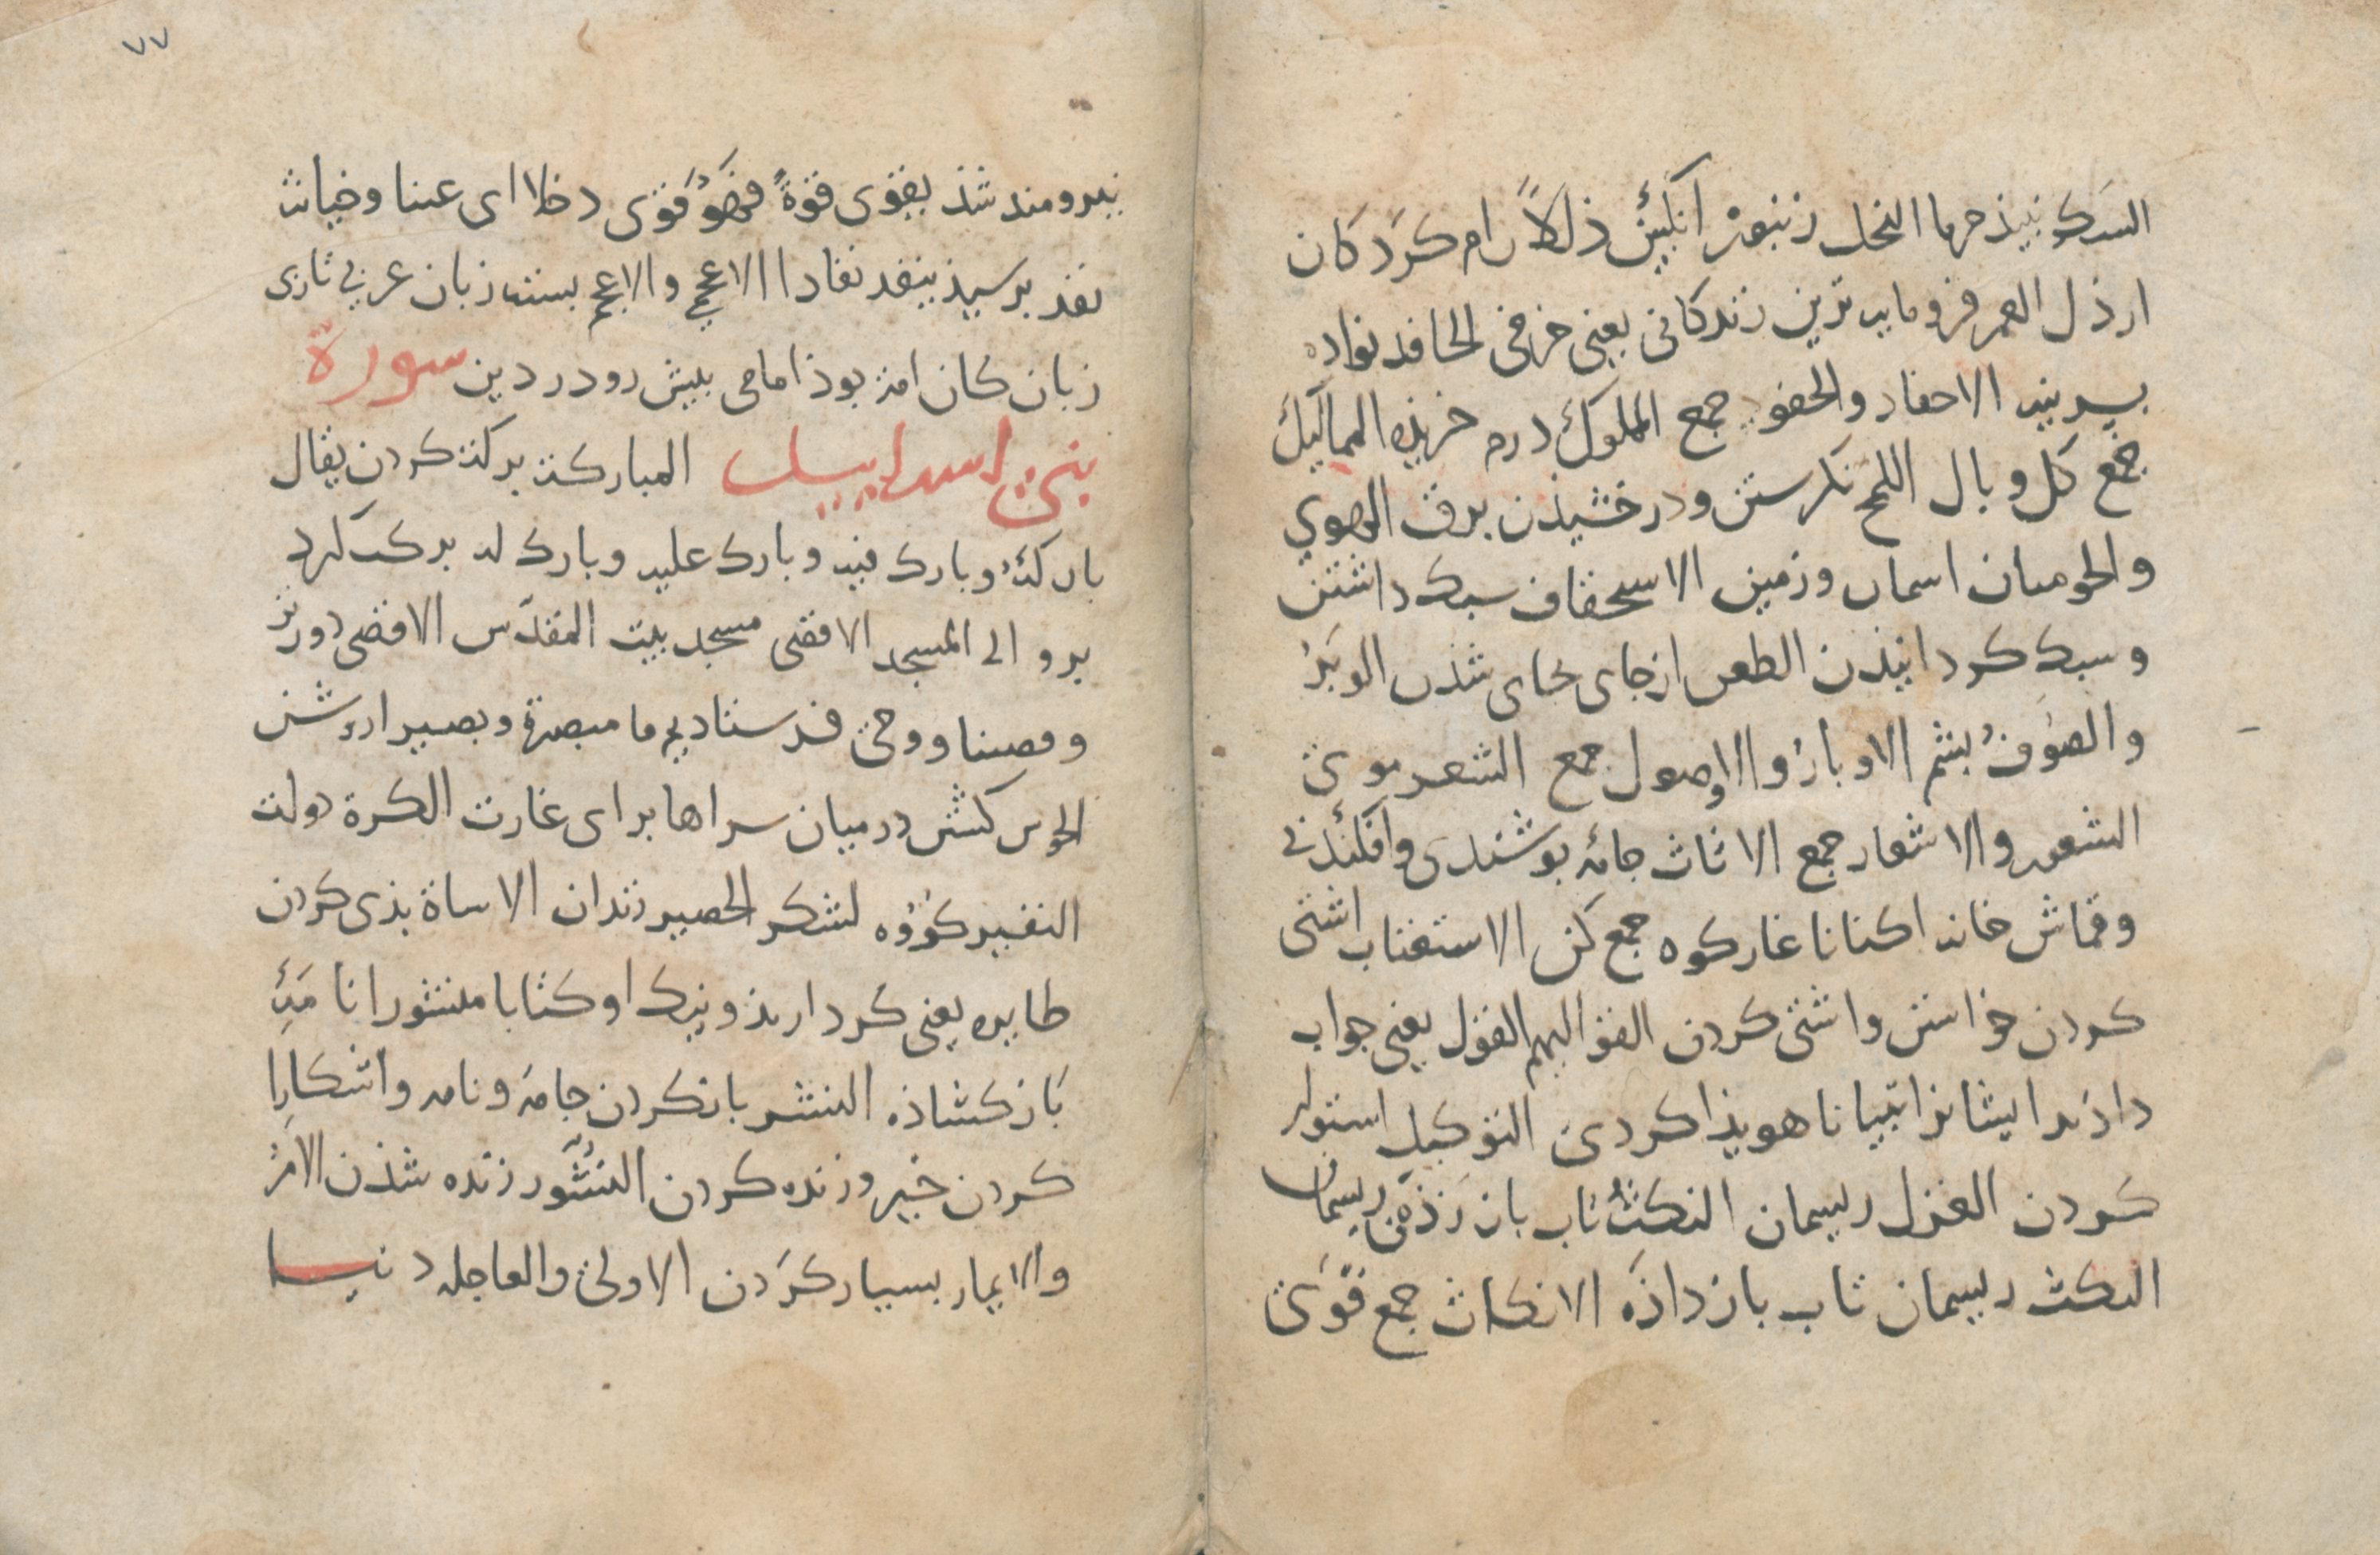 السكر نبیذ خرما النحل زنبور انگبین ذللاً رام کردکان
ارذل العمر فرومایه ترین زندکانی یعنی خرفی الحافد نواده
پسرینه الاحفاد والحفود جمع المملوك درم خریذه الممالیك
جمع کل وبال اللمح نکرستن ودرخشیذن برق الهوی
والجو میان اسمان وزمین الاستخفاف سبک داشتن
وسبک کردانیذن الظعن ازجای بجای شذن الوبر
والصوف پشم الاوبار والاصول جمع الشعر موی
الشعور والاشعار جمع الاثاث جامه پوشندی وافکندنی
وقماش خانه اکنانا غارکوه جمع کن الاستعتاب اشتی
کردن خواستن واشتی کردن القوالیهم القول یعنی جواب
داذند ایشانرا تبیانا هویذا کردن التوکیل استوار
کردن الغزل ریسمان النکث تاب باز زذن ریسمان
النکث ریسمان تاب بازداذه الانکاث جمع قوی
۷۷
نیرومند شذ یقوی قوةً فهو قوی دخلا ای عنتا وخیانت
نفد برسیذ ینفد نفادا الاعجمی والاعجم بسته زبان عربی تازی
زبان کان امة بوذ امامی پیش رو در دین سورة
بنی اسراییل المبارکة برکة کردن یقال
بارکه وبارک فیه وبارک علیه وبارک له برکت کرد
برو الی المسجد الاقصی مسجد بیت المقدس الاقصی دورتر
وقضینا ووحی فرستادیم ما مبصرة وبصیرا روشن
الجوس کشتن درمیان سراها برای غارت الکرة دولت
النفیر کروه لشکر الحصیر زندان الاساة بذی کردن
طایره یعنی کردار بذ ونیک او کتابا منشورا نامه
باز کشاذه النشر بازکردن جامه ونامه واشکارا
کردن خبر وزنده کردن النشور زنده شذن الامر
والایمار بسیار کردن الاولی والعاجله دنیا